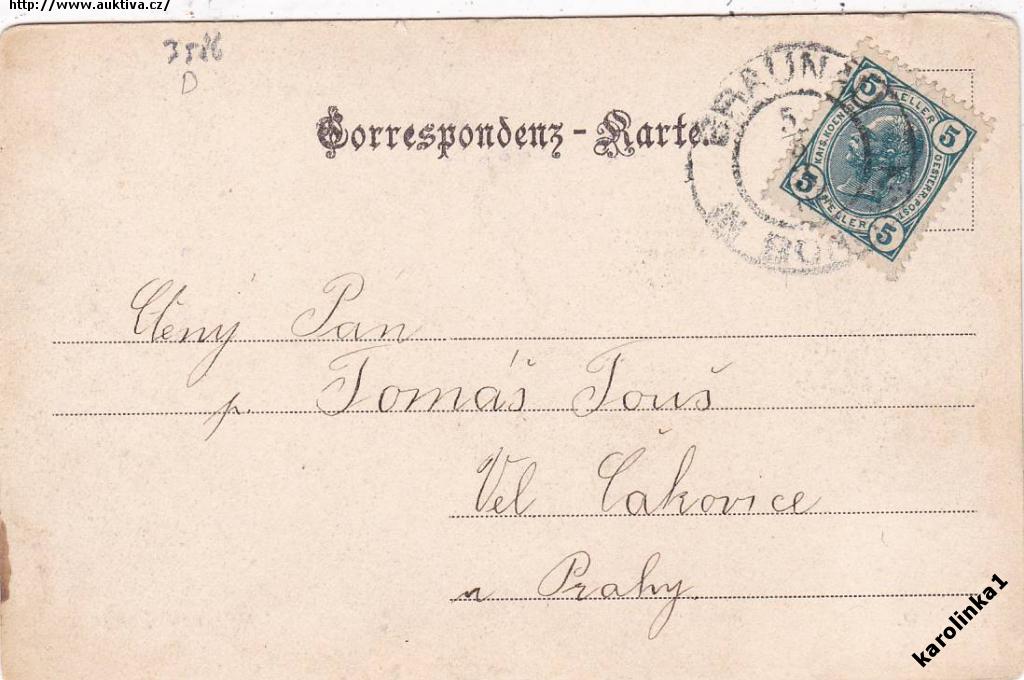 http://www.auktiva.cz/
D
Correspondenz-Karte.
BRAUNAU
IN BÖH
5
5 HELLER 5
KAIS. KOENIGL. OESTERR. POST
5 HELLER 5
Ctěný Pán
p. Tomáš Touš
Vel Čakovice
u Prahy.
karolinka1